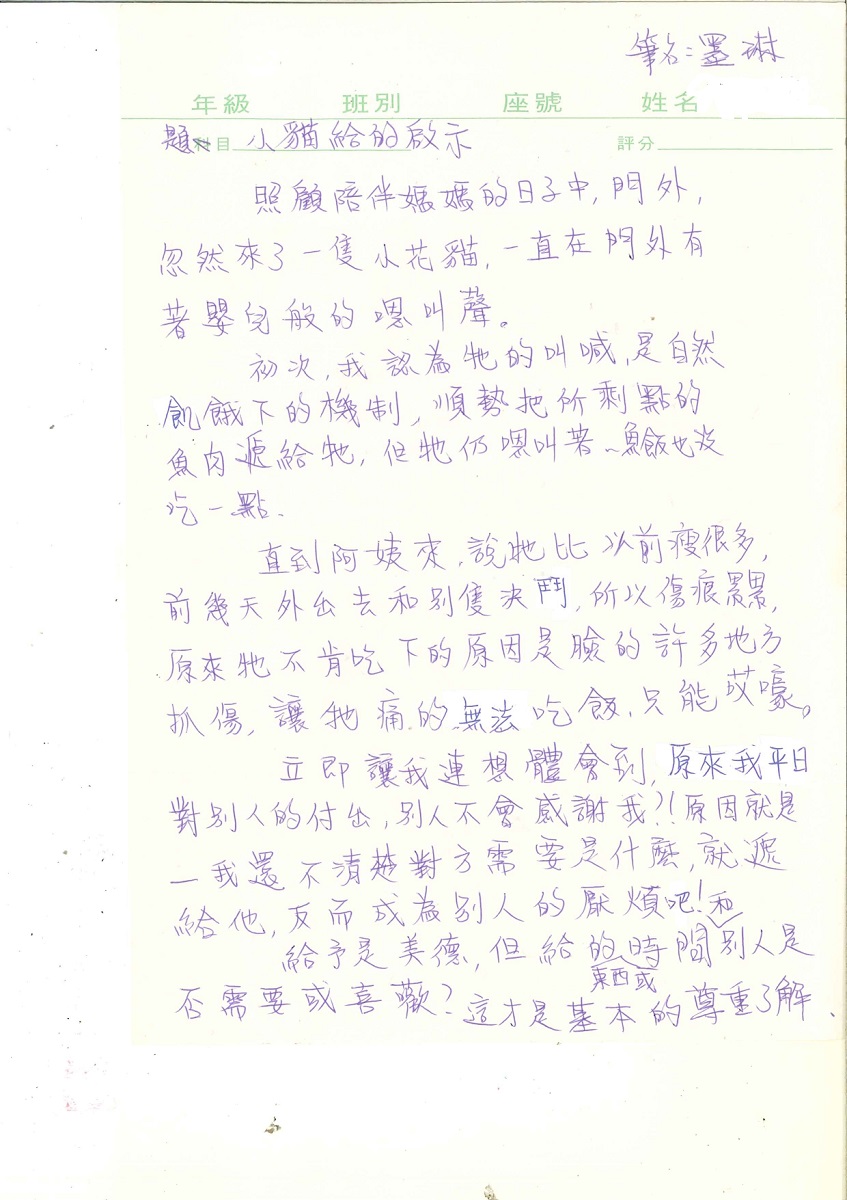 筆名：墨琳
年級 班別 座號 姓名
題 科目 小貓給的啟示 評分
照顧陪伴媽媽的日子中，門外，
忽然來了一隻小花貓，一直在門外有
著嬰兒般的嗯叫聲。
初次，我認為牠的叫喊，是自然
飢餓下的機制，順勢把所剩點的
魚肉遞給牠，但牠仍嗯叫著、魚飯也沒
吃一點、
直到阿姨來，說牠比以前瘦很多，
前幾天外出去和別隻決鬥，所以傷痕累累，
原來牠不肯吃下的原因是臉的許多地方
抓傷，讓牠痛的無法吃飯，只能哎嚎。
立即讓我連想體會到，原來我平日
對別人的付出，別人不會感謝我?!原因就是
—我還不清楚對方需要是什麼，就遞
給他，反而成為別人的厭煩吧!
給予是美德，但給的東西或時間和別人是
否需要或喜歡？這才是基本的尊重了解、